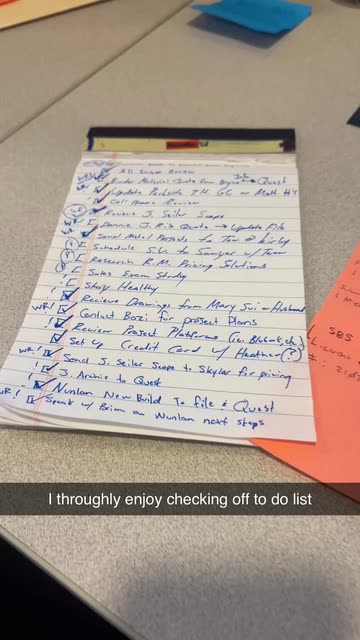 All
Binder Material Quote from Quest
Update T.H. GC or Math #4
Call Review
WR Review J. Seiler Scope
Donnie J.R's Quote → Update File
WR Send Metal Projects to Tom @ Kirby
Schedule S.V. to Sawyer w/ Tom
Research R.M. Pricing Solutions
Sales Exam Study
Stay Healthy
! Review Drawings from Mary Sui & Husband
WR! Contact Bozi for project plans
! Review Project Platforms (i.e. etc.)
Set up Credit Card w/ Heather (?)
WR! Send J. Seiler Scope to Skyler for pricing
! J. to Quest
! Nunlan New Build To file & Quest
WR! Speak w/ Brian on Nunlan next steps
SBS
I throughly enjoy checking off to do list